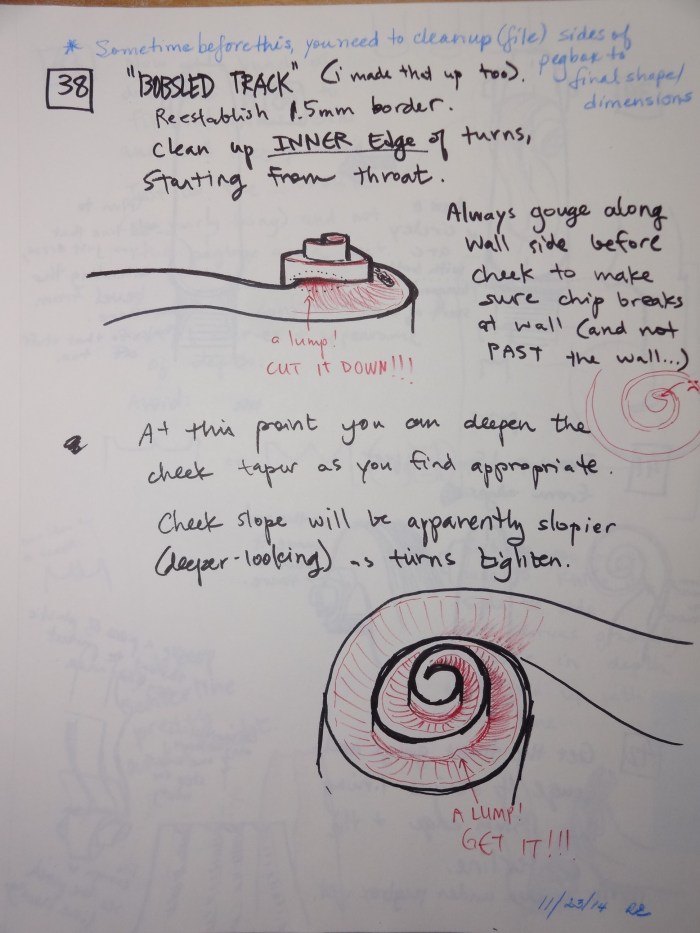 * Sometime before this, you need to clean up (file) sides of
pegbox to
final shape/
dimensions
38
"BOBSLED TRACK" (i made that up too).
Reestablish 1.5mm border.
Clean up INNER Edge of turns,
Starting From throat.
Always gouge along
wall side before
cheek to make
sure chip breaks
at wall (and not
PAST the wall...)
a lump!
CUT IT DOWN!!!
At this point you can deepen the
cheek taper as you find appropriate.
Cheek slope will be apparently slopier
(deeper-looking) as turns tighten.
A LUMP!
GET IT!!!
11/23/14